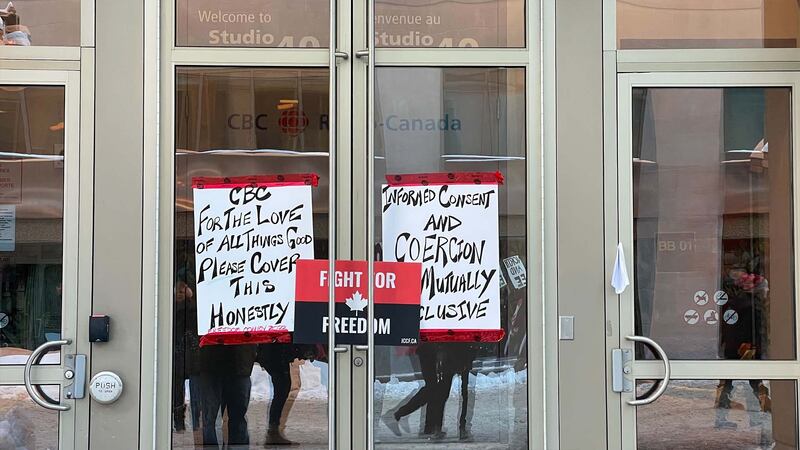 Welcome to
Studio 40
Bienvenue au
Studio 40
CBC
-Canada
CBC
FOR THE LOVE
OF ALL THINGS GOOD
PLEASE COVER
THIS
HONESTLY
INFORMED CONSENT
AND
COERCION
MUTUALLY
CLUSIVE
FIGHT FOR
FREEDOM
JCCF.CA
BB 01
PUSH